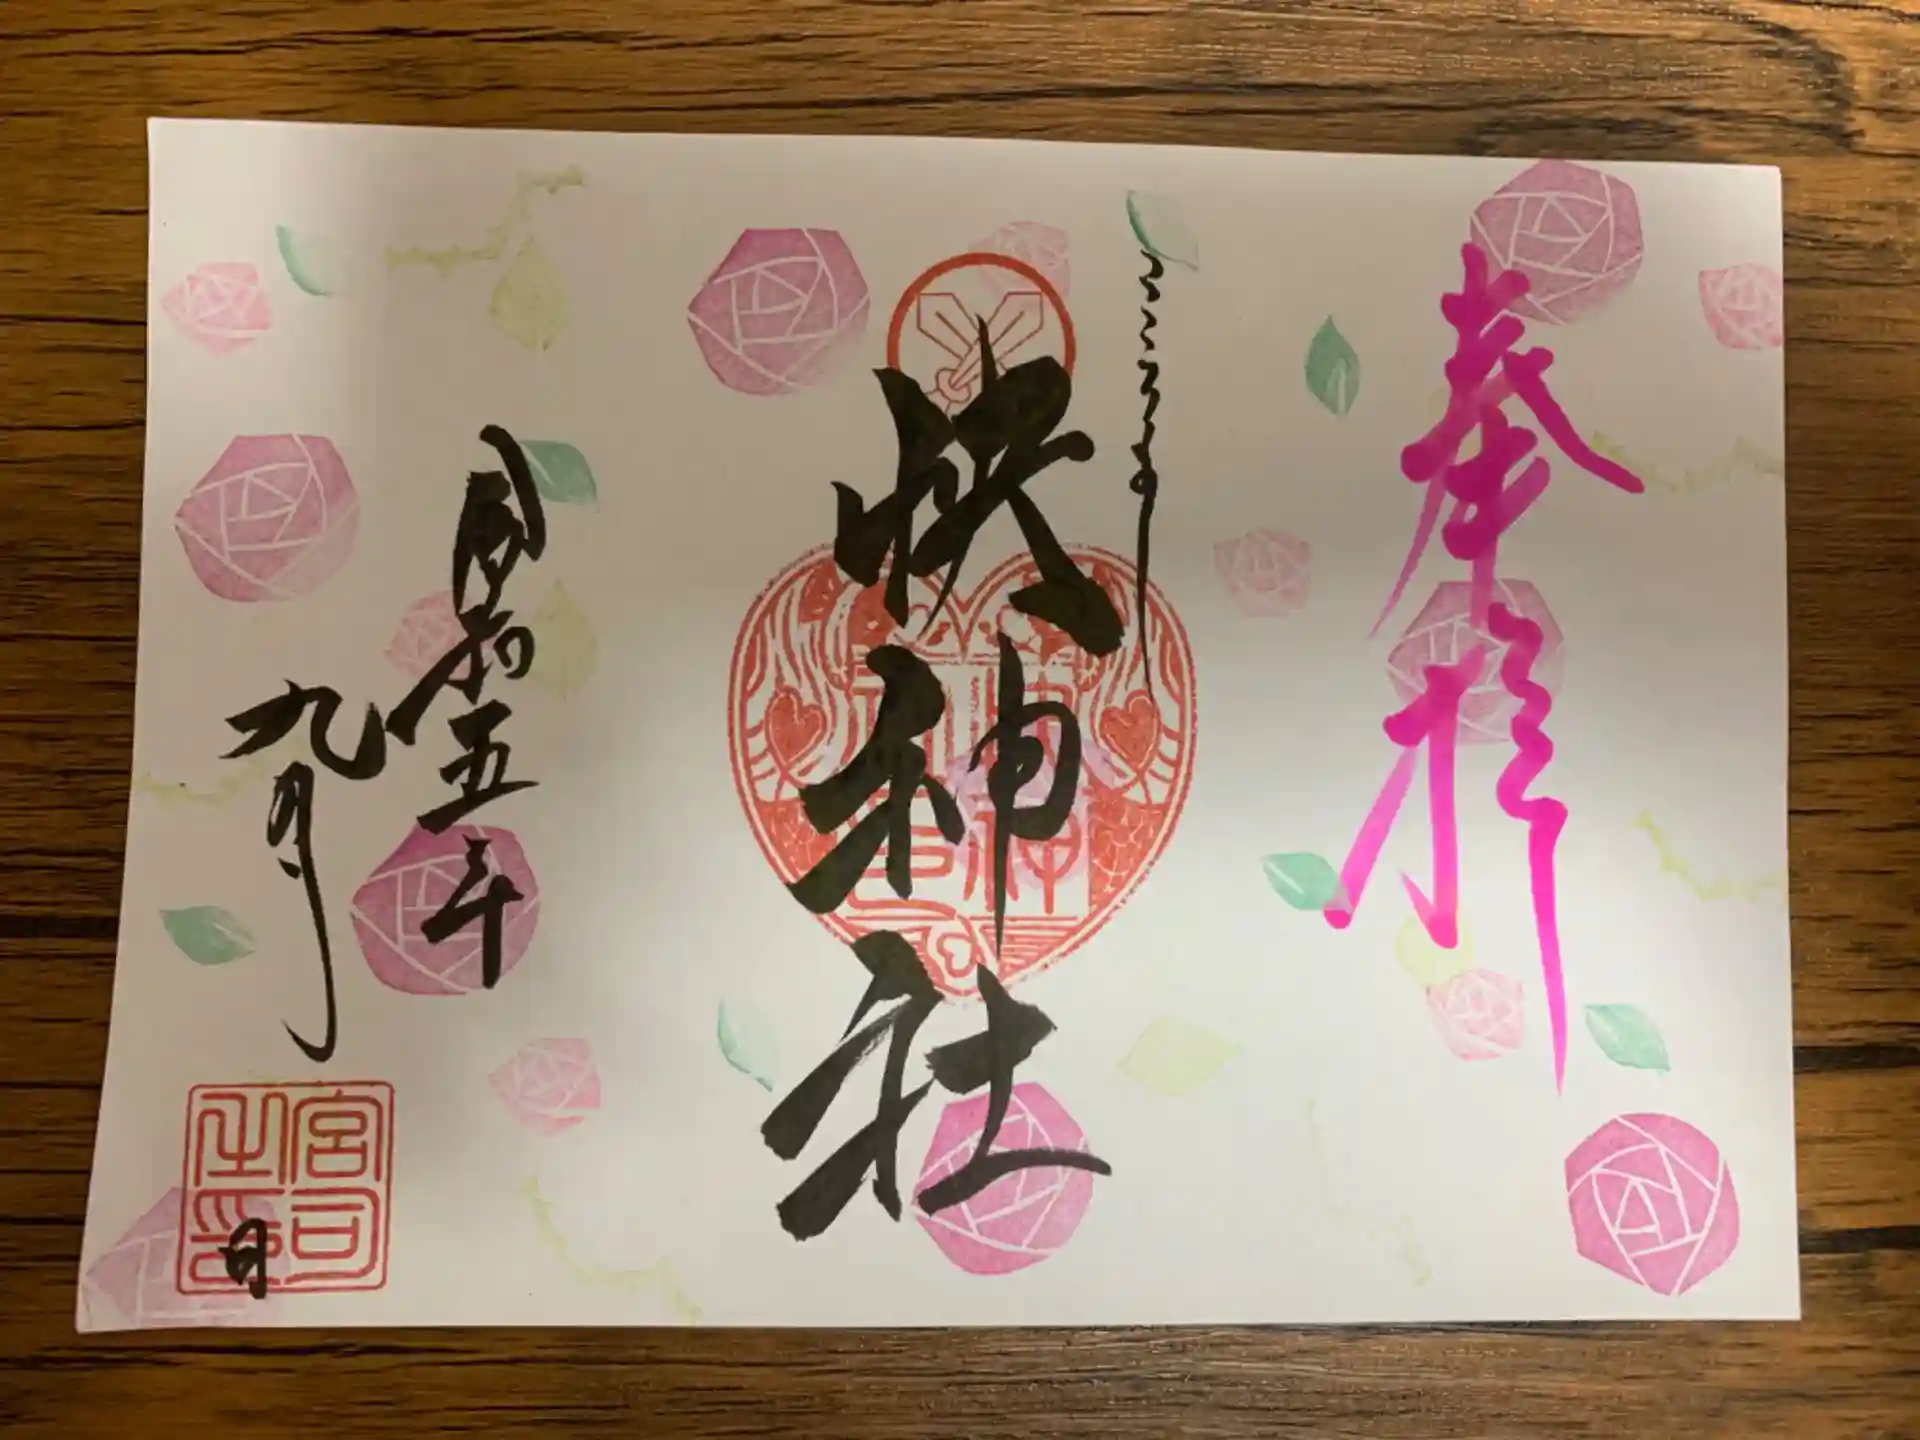 奉拝
快神社
和五年
九月
日
宮司之印